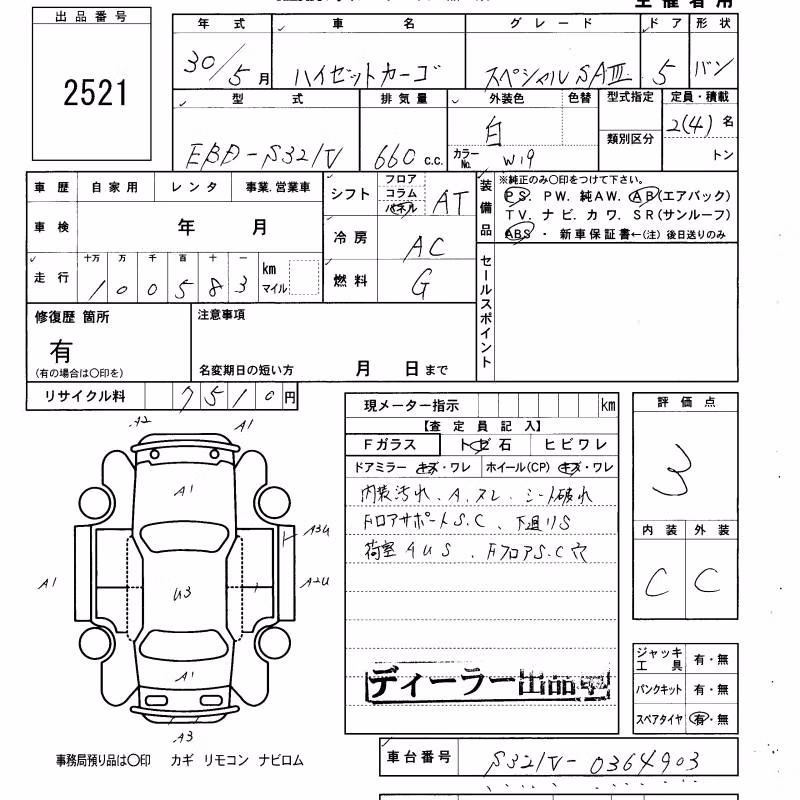 主催者用
出品番号
2521
年式 車名 グレード ドア 形状
30/5月 ハイゼットカーゴ スペシャルSAⅢ 5 バン
型式 排気量 外装色 色替 型式指定 定員・積載
EBD-S321V 660 c.c. 白 2(4)名
カラーNo. W19 類別区分 トン
車歴 自家用 レンタ 事業.営業車
車検 年 月
走行 十万 万 千 百 十 一 km マイル
1 0 0 5 8 3
シフト フロア コラム パネル AT
冷房 AC
燃料 G
装備品 ※純正のみ〇印をつけて下さい。
PS. PW. 純AW. AB(エアバック)
TV. ナビ. カワ. SR(サンルーフ)
ABS ・ 新車保証書←(注) 後日送りのみ
セールスポイント
修復歴 箇所
有
(有の場合は〇印を)
注意事項
名変期日の短い方 月 日まで
リサイクル料 7510円
現メーター指示 km
【査定員記入】
Fガラス トビ石 ヒビワレ
ドアミラー キズ・ワレ ホイール(CP) キズ・ワレ
内装汚れ、A、スレ、シート破れ
FロアサポートS.C、下廻りS
荷室AUS、FフロアS.C穴
ディーラー出品車
評価点
3
内装 外装
C C
ジャッキ工具 有・無
パンクキット 有・無
スペアタイヤ 有・無
A2 A1
A1
A3U
A1 U3 A2U
A1
A3
事務局預り品は〇印 カギ リモコン ナビロム
車台番号 S321V-0364903